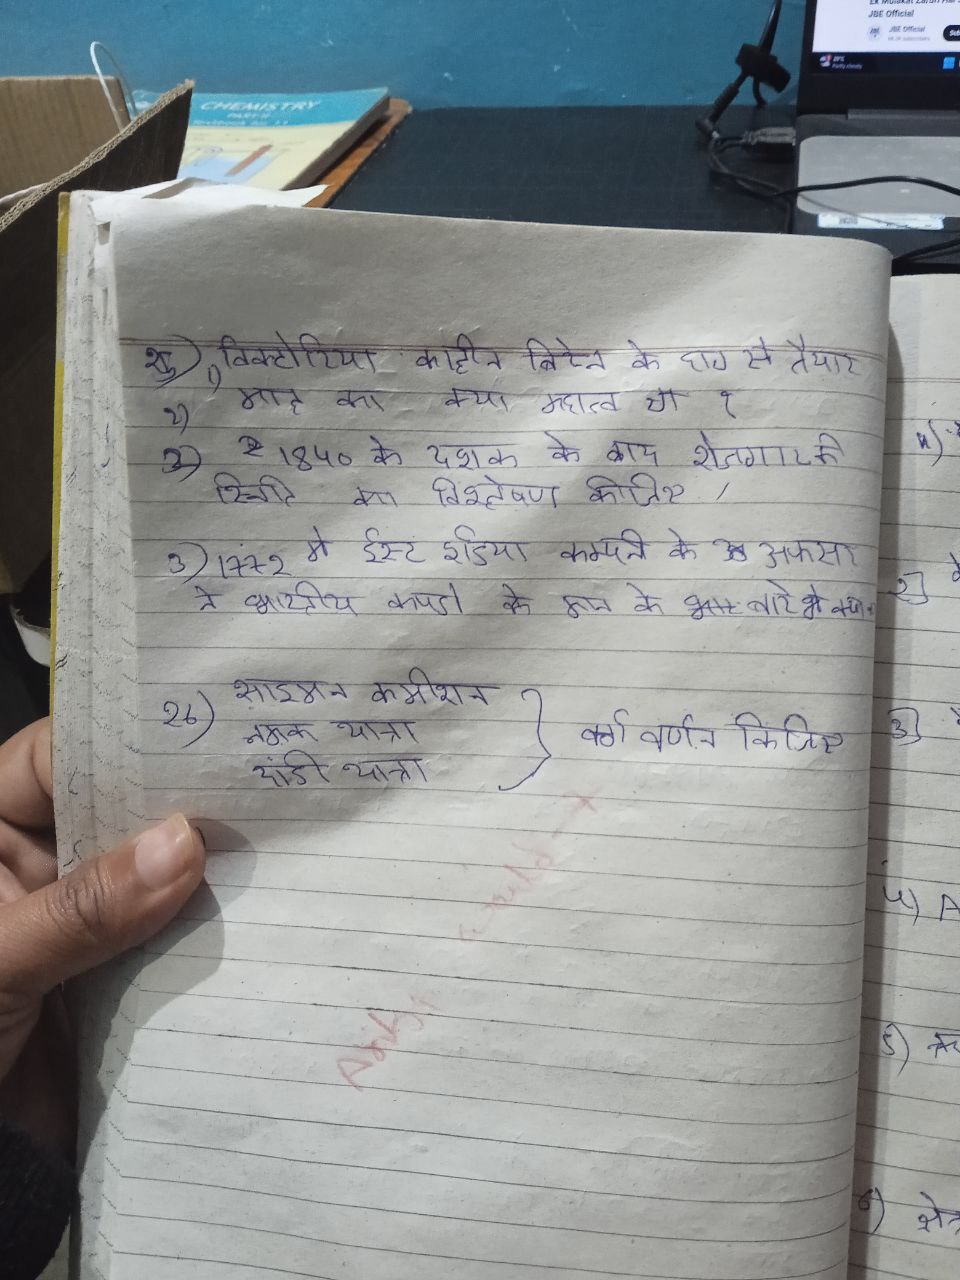 CHEMISTRY
PART-II
JBE Official
JBE Official
25) 1) विक्टोरिया कालीन ब्रिटेन के हाथ से तैयार
2) माल का क्या महत्व था ?
2) 1840 के दशक के बाद रोजगार की
स्थिति का विश्लेषण कीजिए /
3) 1772 में ईस्ट इंडिया कम्पनी के अफसर
ने भारतीय कपडो के मान के बारे में क्या
26) साइमन कमीशन
नमक यात्रा
दांडी यात्रा
वर्णन किजिए
2]
3]
4) A
5)
6)